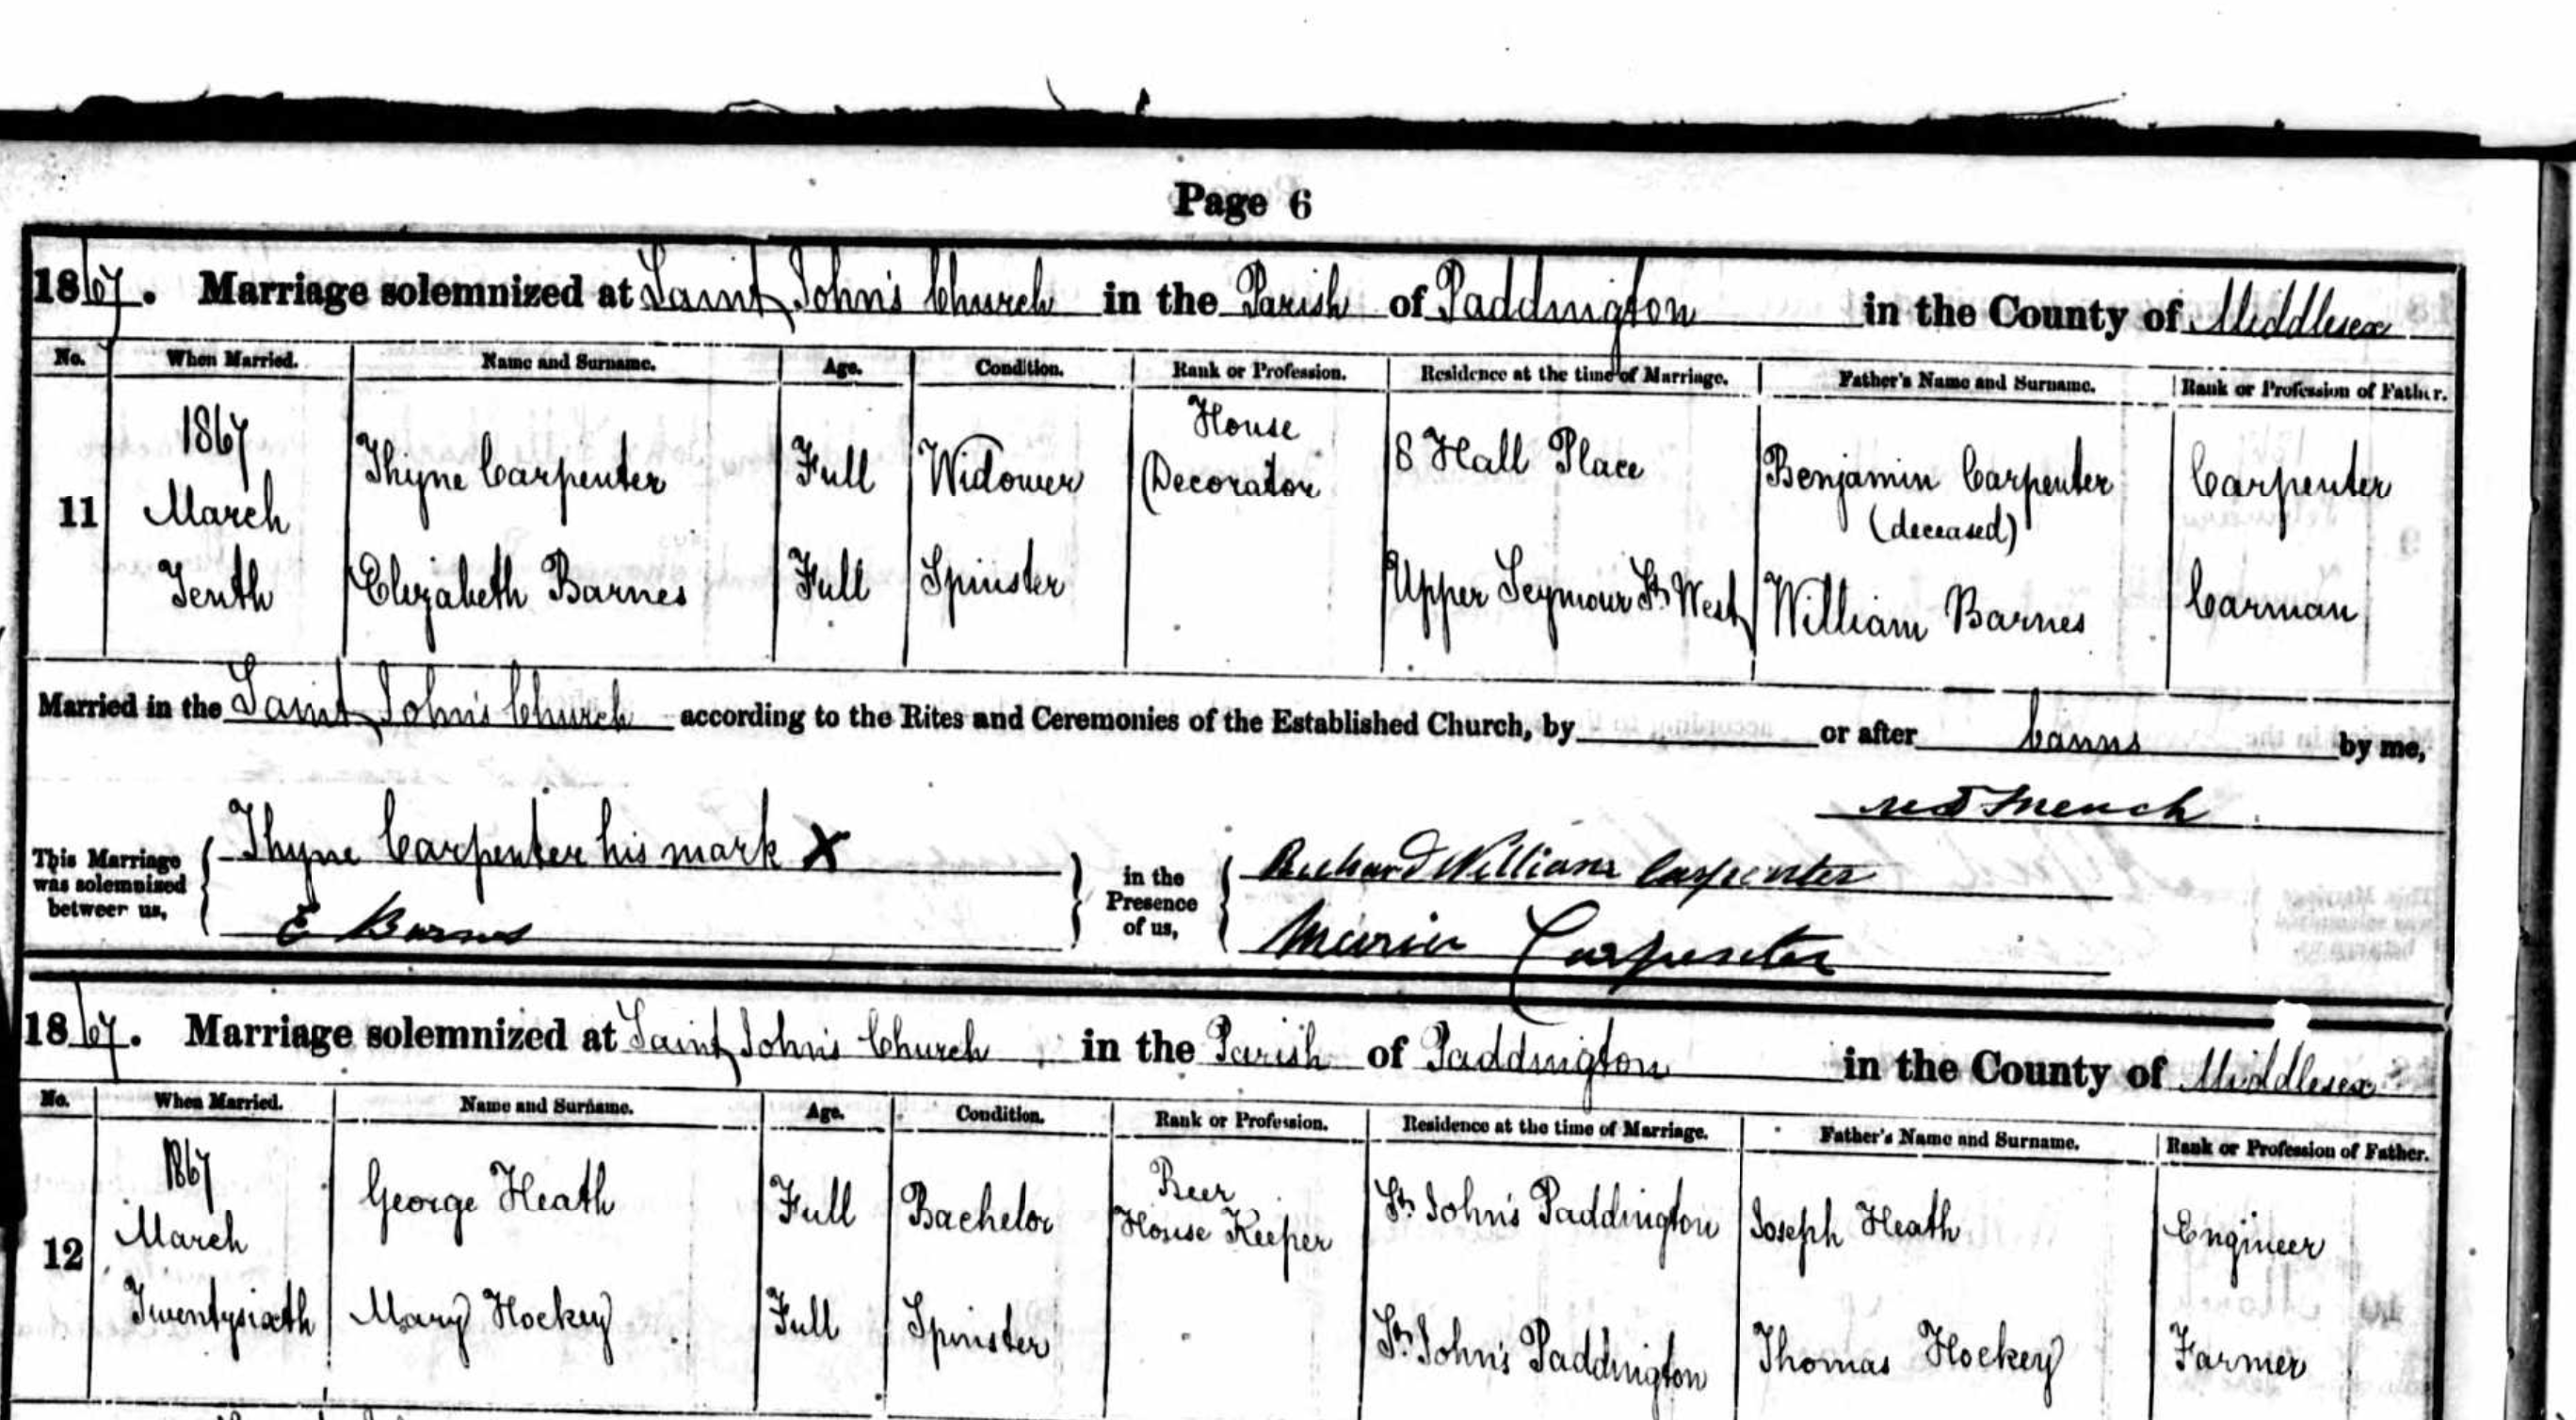 Page 6
1867. Marriage solemnized at Saint John's Church in the Parish of Paddington in the County of Middlesex
No. When Married. Name and Surname. Age. Condition. Rank or Profession. Residence at the time of Marriage. Father's Name and Surname. Rank or Profession of Father.
11
1867
March
Tenth
Thyne Carpenter Full Widower House Decorator 8 Hall Place Benjamin Carpenter (deceased) Carpenter
Elizabeth Barnes Full Spinster Upper Seymour St. West William Barnes Carman
Married in the Saint John's Church according to the Rites and Ceremonies of the Established Church, by or after banns by me,
This Marriage was solemnized between us,
Thyne Carpenter his mark X
E Barnes
in the Presence of us,
Richard William Carpenter
Carpenter
1867. Marriage solemnized at Saint John's Church in the Parish of Paddington in the County of Middlesex
No. When Married. Name and Surname. Age. Condition. Rank or Profession. Residence at the time of Marriage. Father's Name and Surname. Rank or Profession of Father.
12
1867
March
Twentysixth
George Heath Full Bachelor Beer House Keeper St. John's Paddington Joseph Heath Engineer
Mary Hockey Full Spinster St. John's Paddington Thomas Hockey Farmer